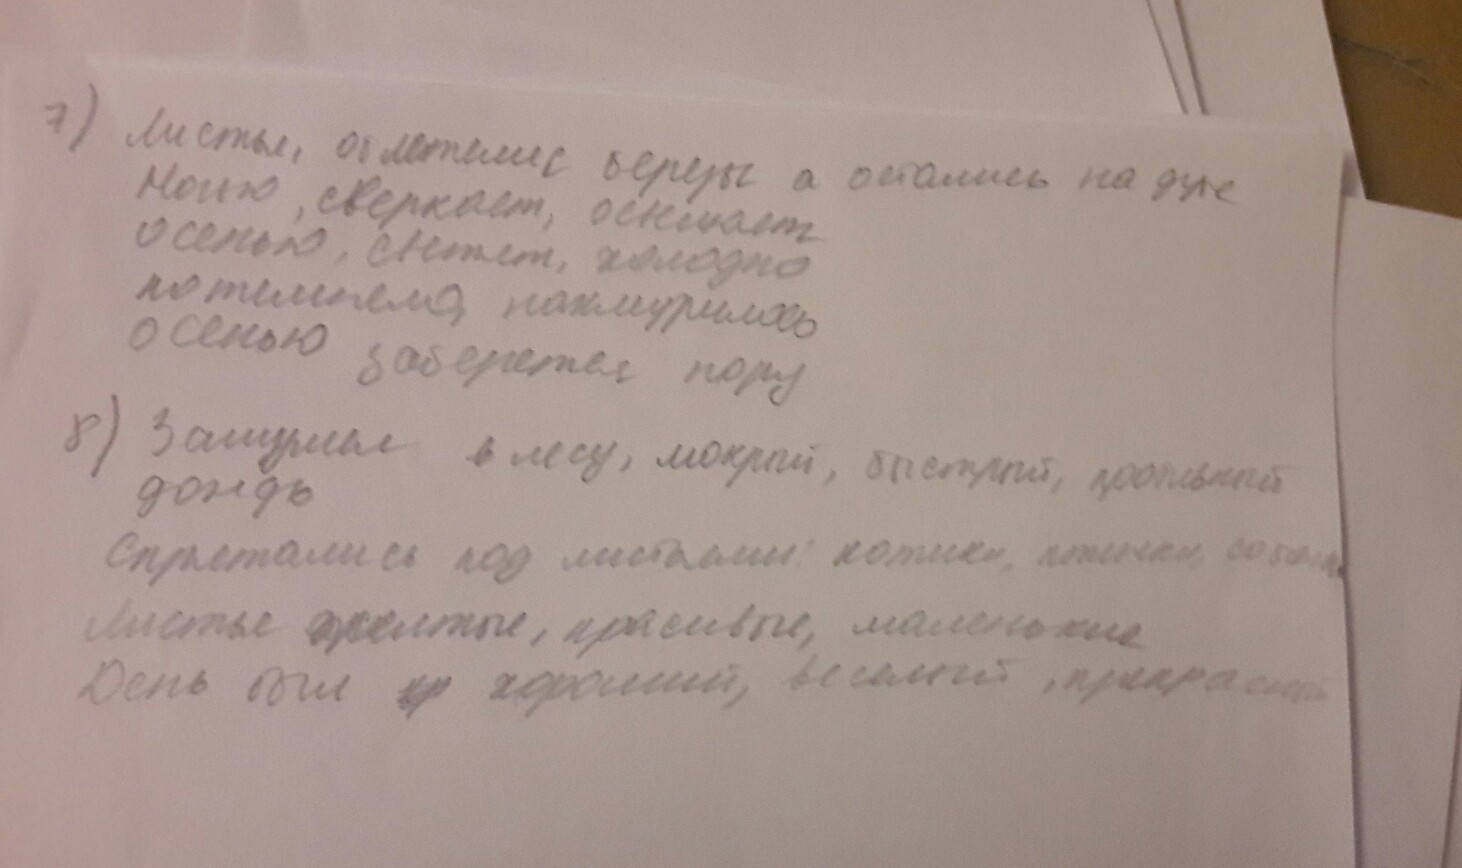 7) Листья, облетелис березы а остались на дубе
Ночью, сверкает, освещает
осенью, светит, холодно
потемнело, нахмурилось
осенью заберется пору
8) Зашумел в лесу, мокрый, быстрый, дождь
Спрятались под листьями: котики, птички,
Листье желтые, красивые, маленькие
День был хороший, веселый, прекрасный